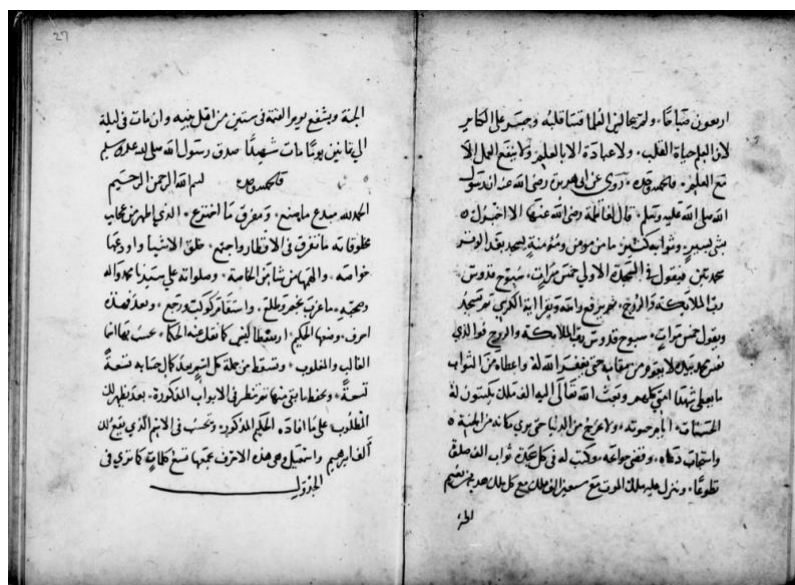 اربعون صباحًا. ولم يجالس العلما قسا قلبه وجسر على الكباير
لان العلم حياة القلب. ولا عبادة الا بالعلم ولا ينفع العمل الا
مع العلم. روي عن ابي هريرة رضى الله عنه ان رسول
الله صلى الله عليه وسلم. قال لفاطمة رضى الله عنها الا اخبرك
بشى يسير. وثوابه كثير. ما من مومن ومؤمنة يسجد بعد الوتر
سجدتين فيقول في السجدة الاولي خمس مرات. سبوح قدوس
رب الملايكة والروح. ثم يرفع راسه ويقرا اية الكرسي ثم يسجد
ويقول خمس مرات. سبوح قدوس رب الملايكة والروح فوالذي
نفس محمد بيده لا يقوم من مقامه حتى يغفر الله له واعطاه من الثواب
وبعث الله تعالى اليه الف ملك يكتبون له
الحسنات. ولا يخرج من الدنيا حتى يرى مكانه من الجنة
واستجاب دعاه. وقضى حوايجه. وكتب له في كل سجدة ثواب الف صلاة
تطوعًا. وينزل عليه ملك الموت مع سبعين الف ملك مع كل ملك
27
الجنة ويشفع يوم القيمة فى ستين من اهل بيته وان مات فى ليلة
الي ثمانين يومًا مات شهيدًا صدق رسول الله صلى الله عليه وسلم
بسم الله الرحمن الرحيم
الحمد لله مبدع ما صنع. ومفرق ما اخترع. الذي اظهر من عجايب
مخلوقاته ما تفرق فى الاقطار واجتمع. خلق الاشيا واودعها
خواصه. وصلواته على سيدنا محمد واله
وصحبه. ما غرب نجم وطلع. واستقام كوكب ورجع. وبعد فهذه
احرف. وضعها الحكيم ارسطاطاليس كما نقل عنه الحكما. حسب بها
الغالب والمغلوب. وتسقط من جملة كل اسم بعد كمال حسابه تسعة
تسعة. وتحفظ ما بقى منها ثم تنظر فى الابواب المذكورة. بعد يظهر لك
المطلوب. على ما افاده الحكيم المذكور. وتحسب فى الاسم الذي يقع لك
ألف ابرهيم واسمعيل وهى هذه الاحرف تسع كلمات كما ترى فى
الجدول